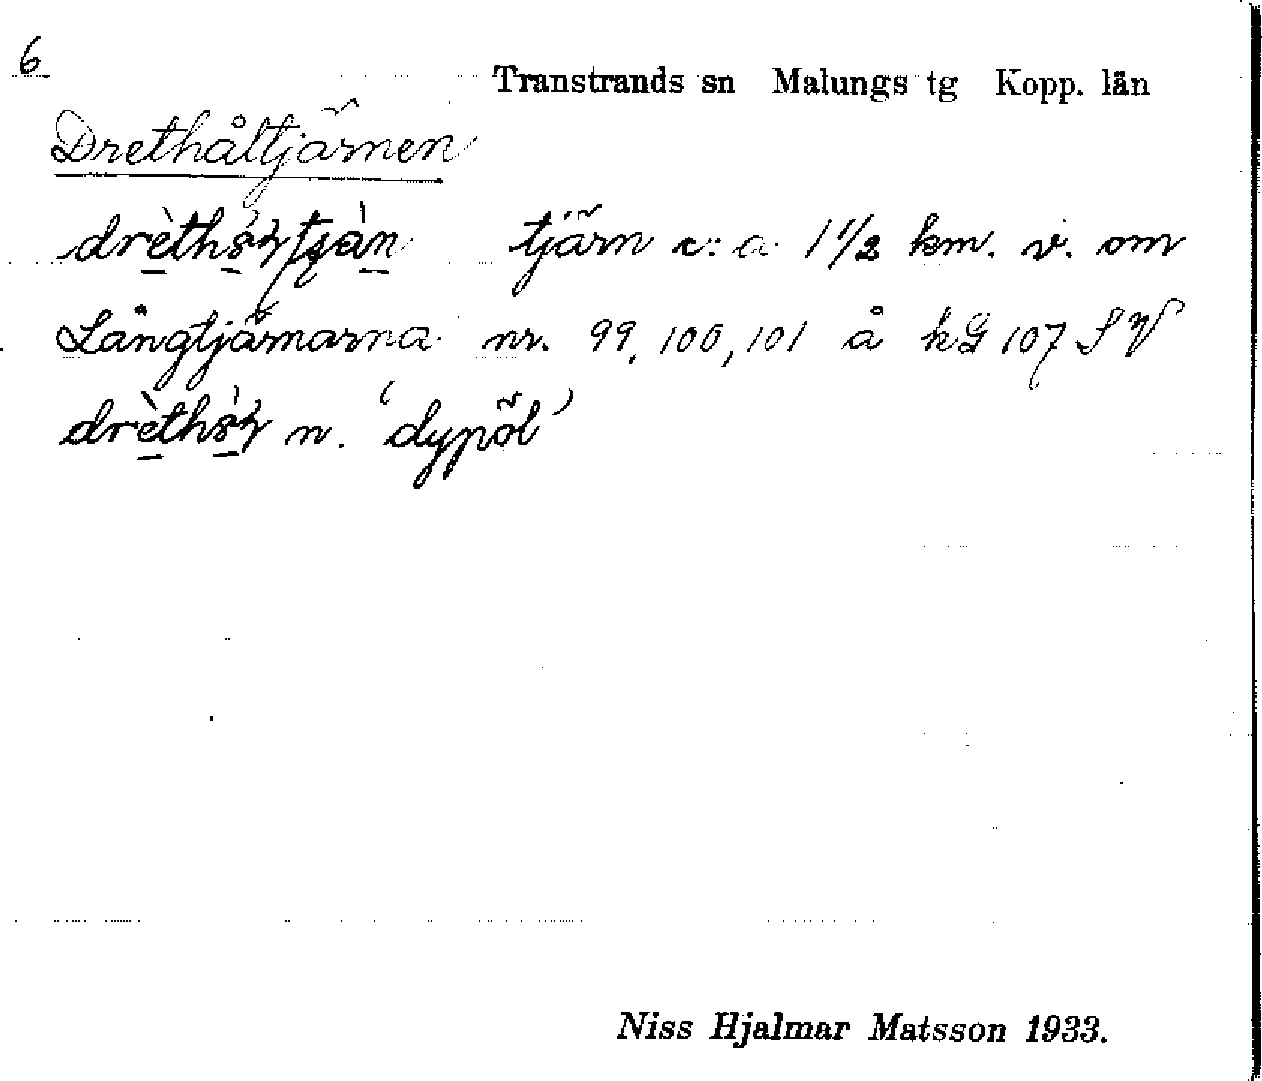 6
Transtrands sn Malungs tg Kopp. län
Drethåltjärnen
tjärn c:a 1 1/2 km. v. om
Långtjärnarna nr. 99, 100, 101 å kG 107 SV
n. 'dypöl'
Niss Hjalmar Matsson 1933.